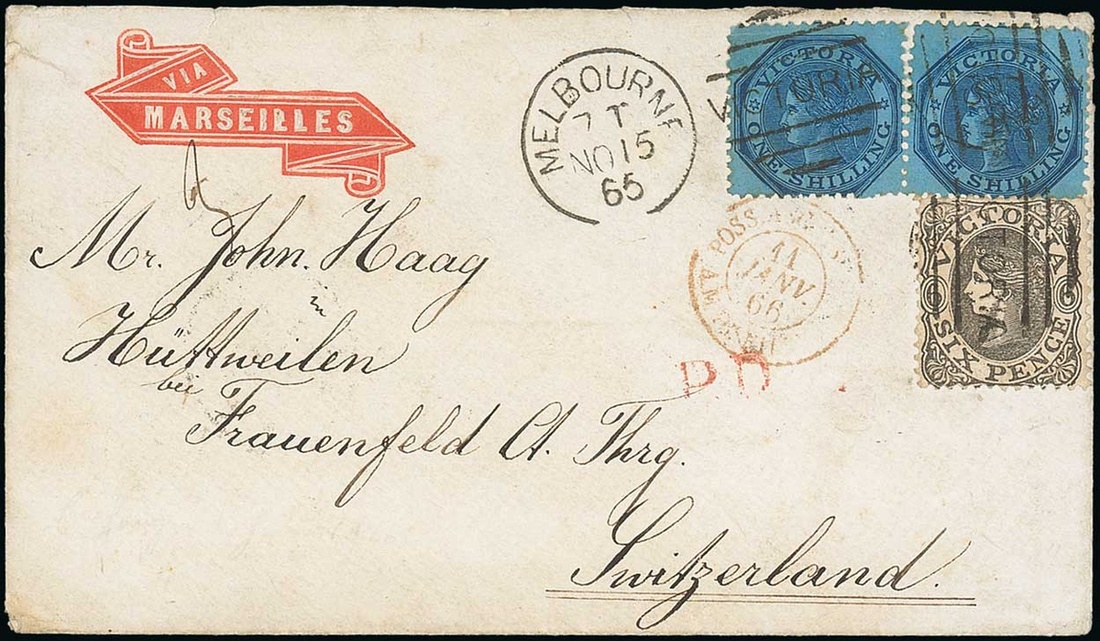 VIA
MARSEILLES
MELBOURNE
7 T
NO 15
65
VICTORIA
ONE SHILLING
VICTORIA
ONE SHILLING
VICTORIA
SIX PENCE
POSS
11
JANV.
66
P.D.
Mr. John Haag
in
Hüttweilen
bei
Frauenfeld Ct. Thrg.
Switzerland.